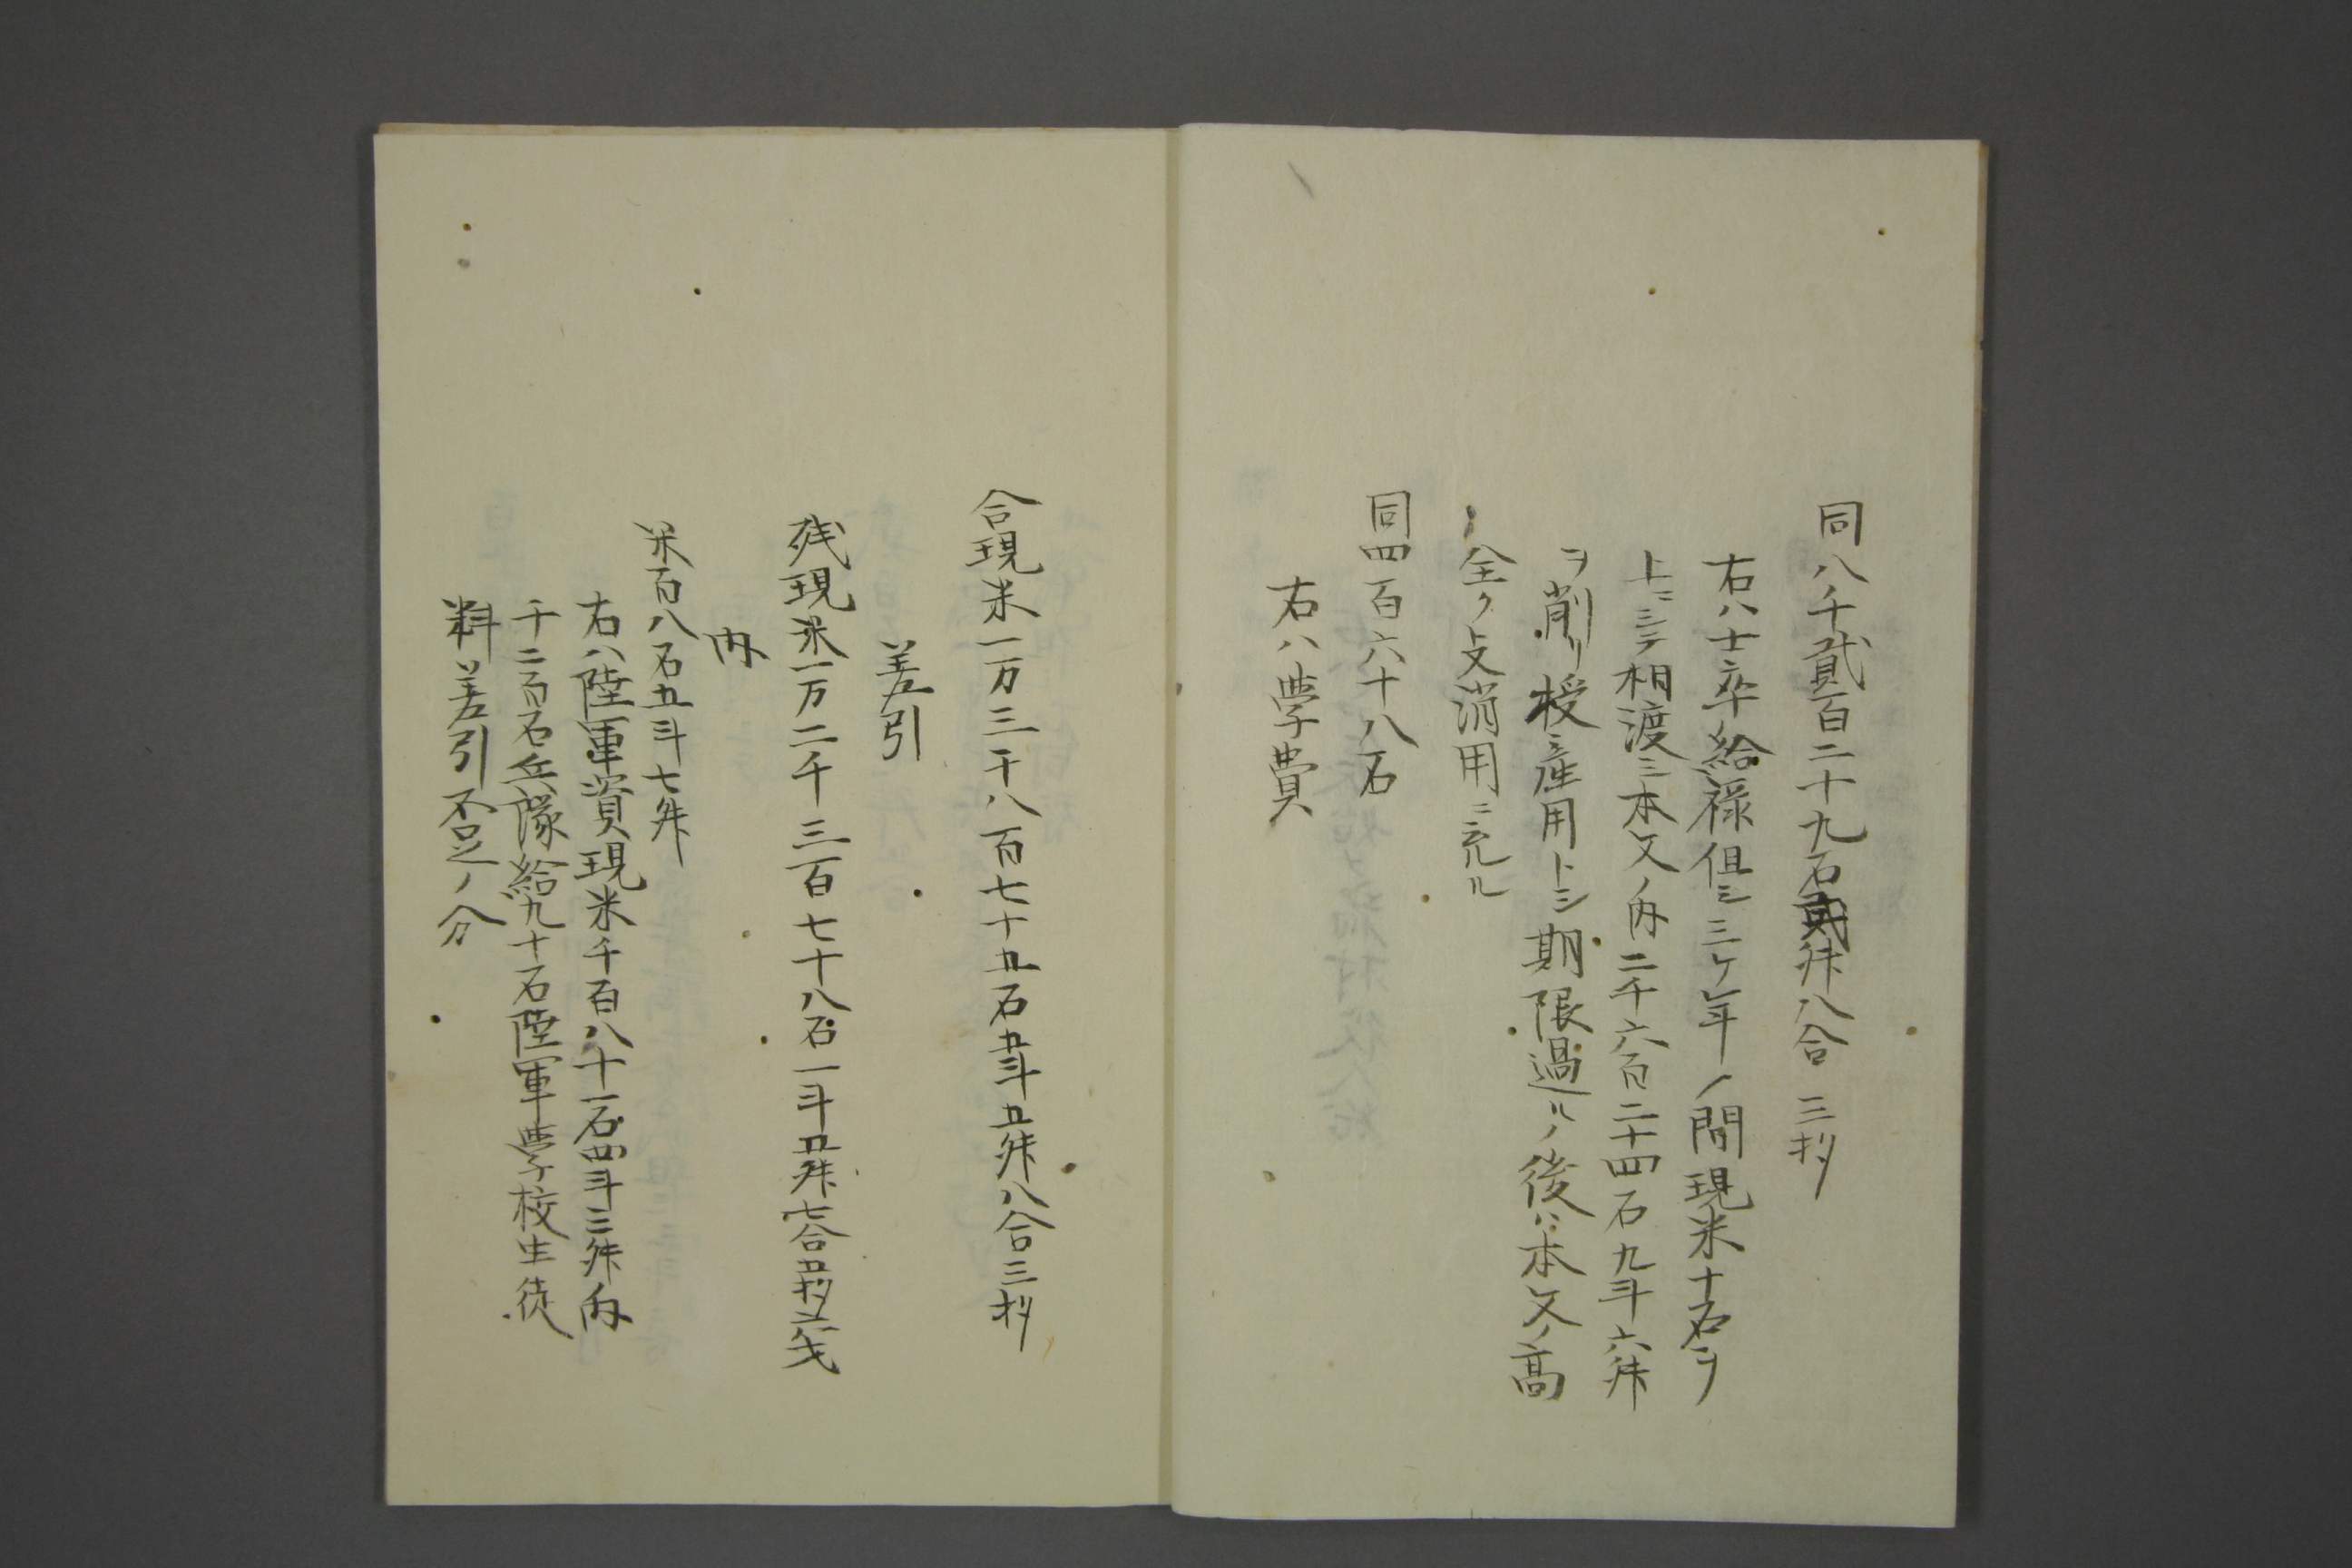 同八千貳百二十九石貳升八合三抄
右ハ士卒給禄但シ三ケ年ノ間現米十石ヲ
上ニシテ相渡ニ本文ノ内二千六百二十四石九斗六升
ヲ削リ授産用トシ期限過ルノ後ハ本文ノ高
全ク支消用ニ充ル
同四百六十八石
右ハ學費
合現米一万三千八百七十五石五斗五升八合三抄
差引
残現米一万二千三百七十八石一斗五升七合五抄六戈
内
米百八石五斗七升
右ハ陸軍資現米千百八十一石四斗三升内
千二百石兵隊給九十石陸軍學校生徒
料差引不足ノ分